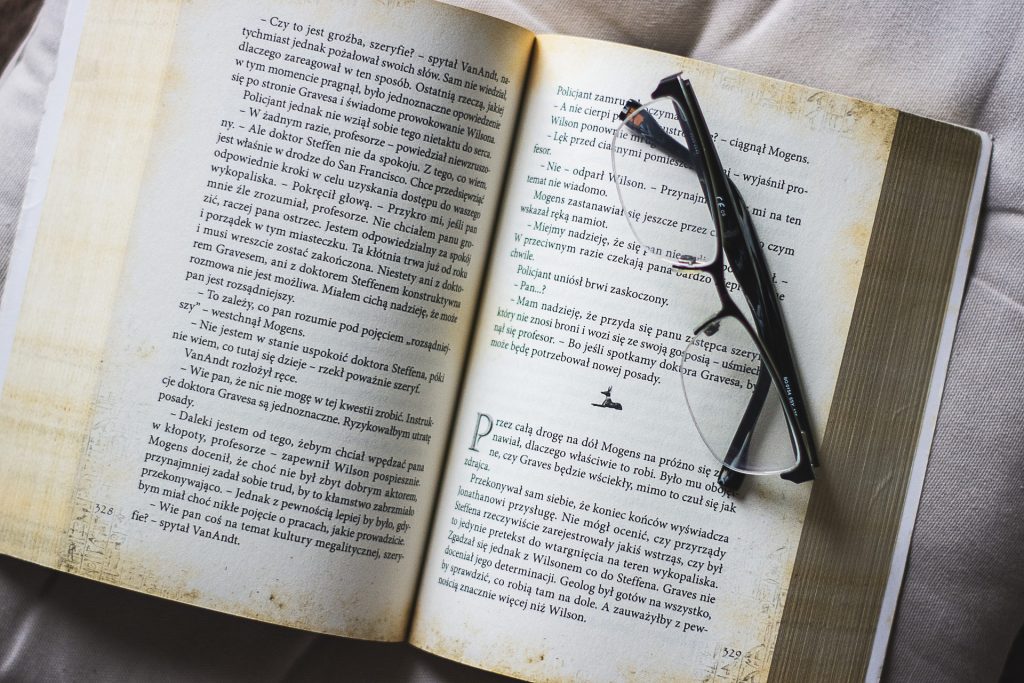 – Czy to jest groźba, szeryfie? – spytał VanAndt, na-
tychmiast jednak pożałował swoich słów. Sam nie wiedział,
dlaczego zareagował w ten sposób. Ostatnią rzeczą, jakiej
w tym momencie pragnął, było jednoznaczne opowiedzenie
się po stronie Gravesa i świadome prowokowanie Wilsona.
Policjant jednak nie wziął sobie tego nietaktu do serca.
– W żadnym razie, profesorze – powiedział niewzruszo-
ny. – Ale doktor Steffen nie da spokoju. Z tego, co wiem,
jest właśnie w drodze do San Francisco. Chce przedsięwziąć
odpowiednie kroki w celu uzyskania dostępu do waszego
wykopaliska. – Pokręcił głową. – Przykro mi, jeśli pan
mnie źle zrozumiał, profesorze. Nie chciałem panu gro-
zić, raczej pana ostrzec. Jestem odpowiedzialny za spokój
i porządek w tym miasteczku. Ta kłótnia trwa już od roku
i musi wreszcie zostać zakończona. Niestety ani z dokto-
rem Gravesem, ani z doktorem Steffenem konstruktywna
rozmowa nie jest możliwa. Miałem cichą nadzieję, że może
pan jest rozsądniejszy.
– To zależy, co pan rozumie pod pojęciem „rozsądniej-
szy” – westchnął Mogens.
– Nie jestem w stanie uspokoić doktora Steffena, póki
nie wiem, co tutaj się dzieje – rzekł poważnie szeryf.
VanAndt rozłożył ręce.
– Wie pan, że nic nie mogę w tej kwestii zrobić. Instruk-
cje doktora Gravesa są jednoznaczne. Ryzykowałbym utratę
posady.
– Daleki jestem od tego, żebym chciał wpędzać pana
w kłopoty, profesorze – zapewnił Wilson pospiesznie.
Mogens docenił, że choć nie był zbyt dobrym aktorem,
przynajmniej zadał sobie trud, by to kłamstwo zabrzmiało
przekonywająco. – Jednak z pewnością lepiej by było, gdy-
bym miał choć nikłe pojęcie o pracach, jakie prowadzicie.
– Wie pan coś na temat kultury megalitycznej, szery-
fie? – spytał VanAndt.
328
Policjant zamru
– A nie cierpi ? – ciągnął Mogens.
Wilson ponownie
– Lęk przed ciasnymi pomieszcz – wyjaśnił pro-
fesor.
– Nie – odparł Wilson. – Przynajm mi na ten
temat nie wiadomo.
Mogens zastanawiał się jeszcze przez czym
wskazał ręką namiot.
– Miejmy nadzieję, że się pan nie
W przeciwnym razie czekają pana bardzo
chwile.
Policjant uniósł brwi zaskoczony.
– Pan...?
– Mam nadzieję, że przyda się panu zastępca szeryf
który nie znosi broni i wozi się ze swoją gosposią – uśmiech
nął się profesor. – Bo jeśli spotkamy doktora Gravesa, b
może będę potrzebował nowej posady.
Przez całą drogę na dół Mogens na próżno się z
nawiał, dlaczego właściwie to robi. Było mu oboj
ne, czy Graves będzie wściekły, mimo to czuł się jak
zdrajca.
Przekonywał sam siebie, że koniec końców wyświadcza
Jonathanowi przysługę. Nie mógł ocenić, czy przyrządy
Steffena rzeczywiście zarejestrowały jakiś wstrząs, czy był
to jedynie pretekst do wtargnięcia na teren wykopaliska.
Zgadzał się jednak z Wilsonem co do Steffena. Graves nie
doceniał jego determinacji. Geolog był gotów na wszystko,
by sprawdzić, co robią tam na dole. A zauważyłby z pew-
nością znacznie więcej niż Wilson.
329